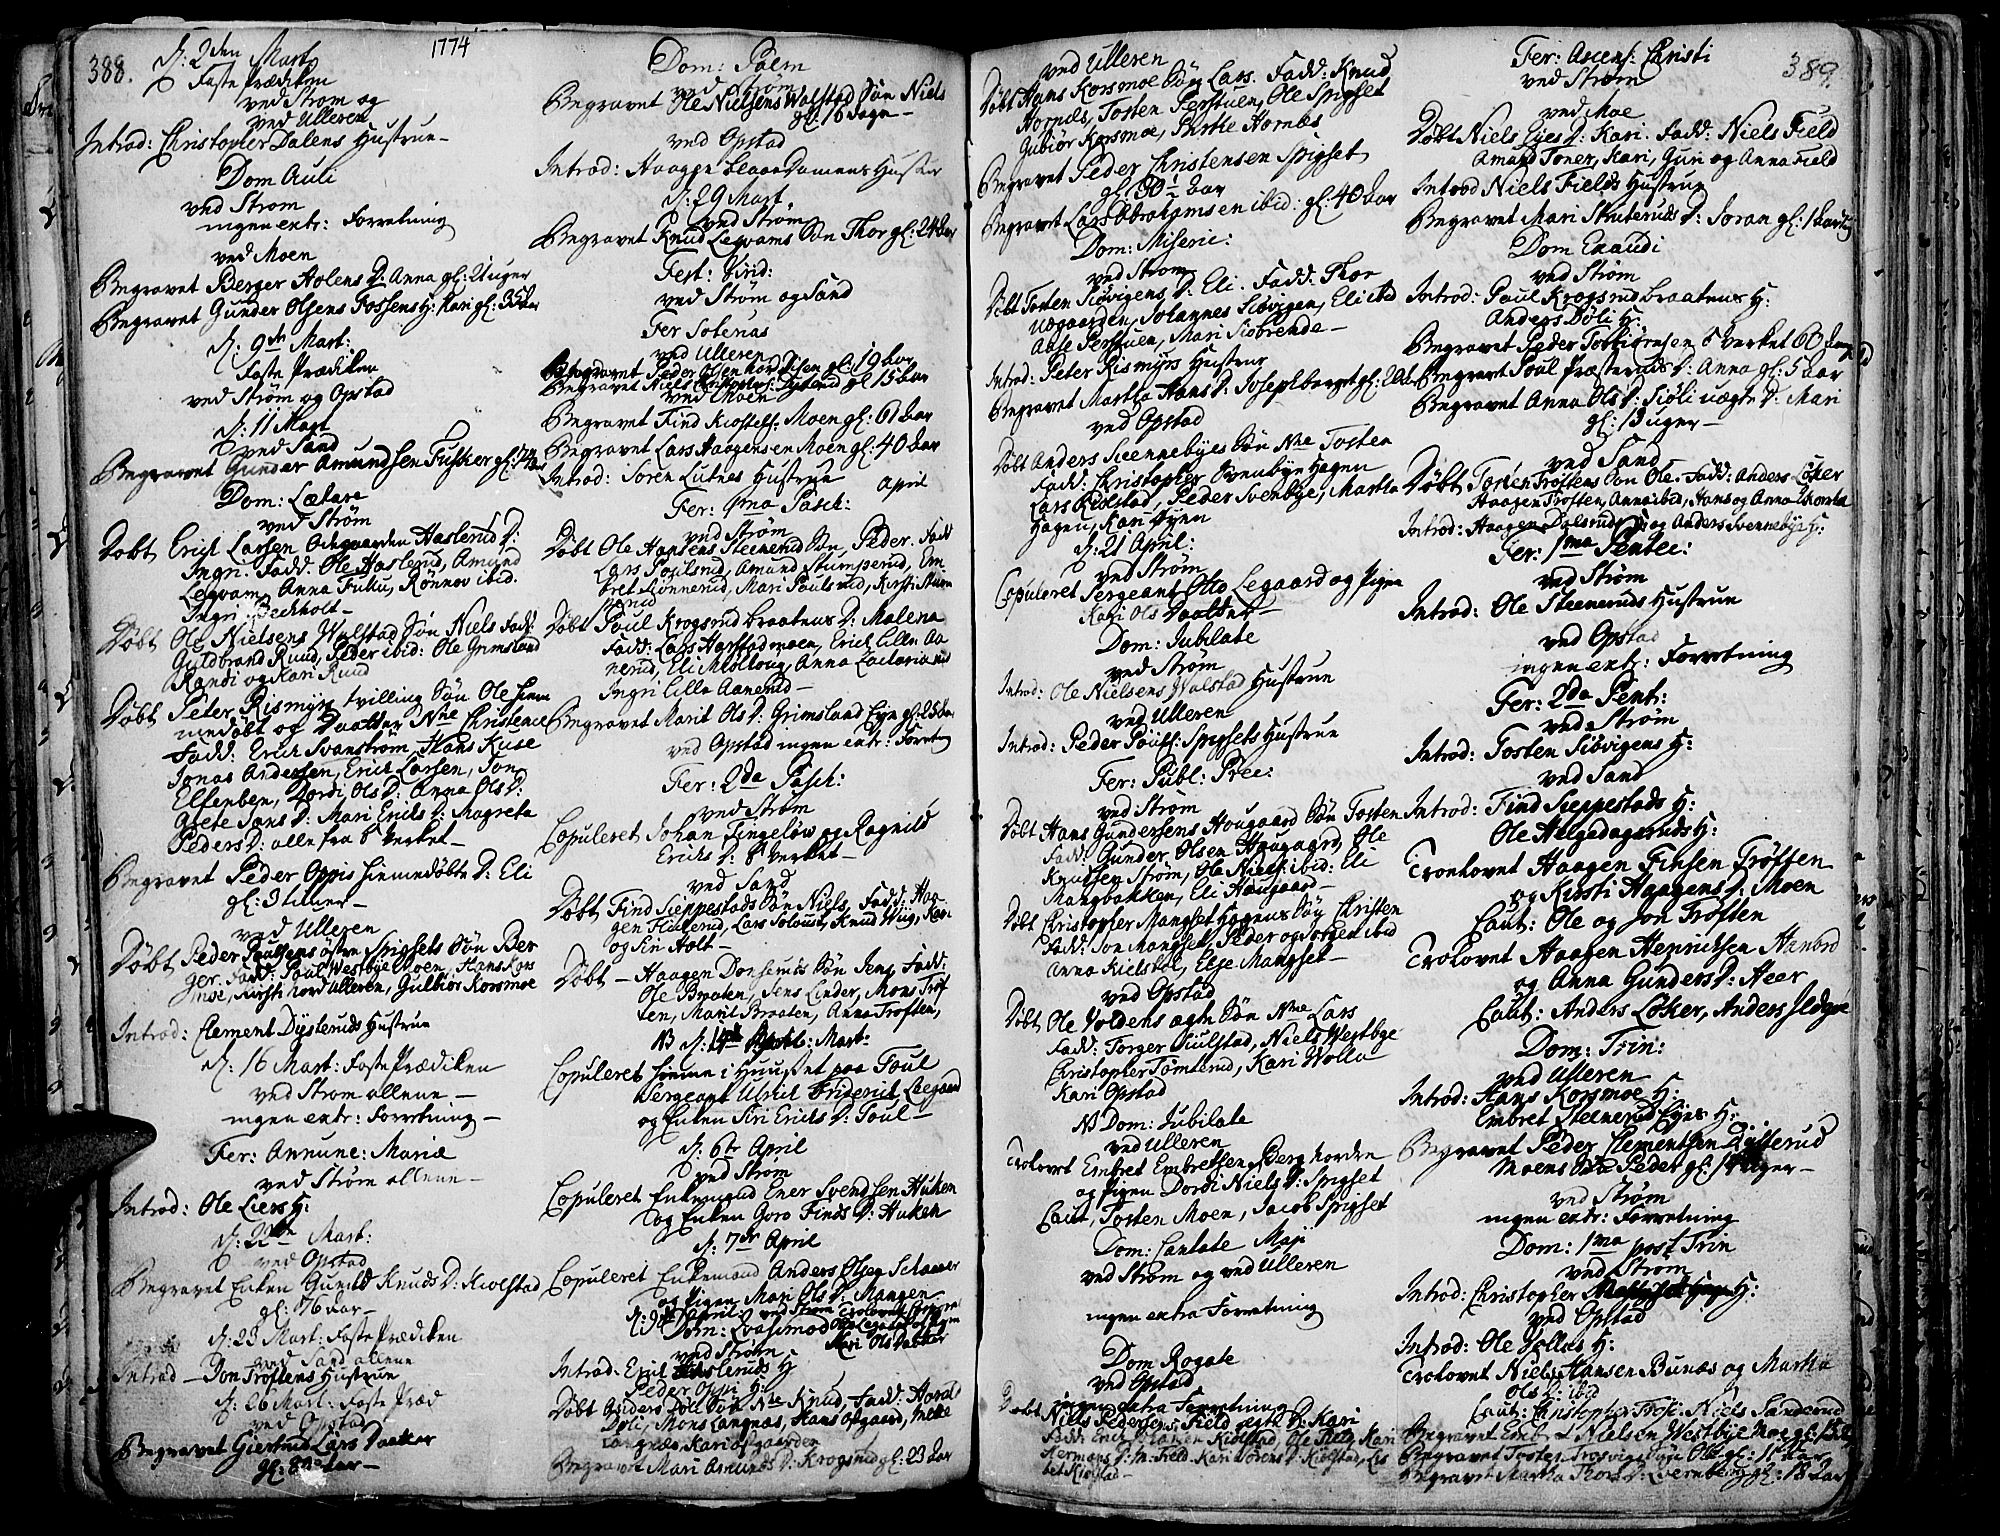 388.
1774
d: 2den Mart:
Faste Prædiken
ved Strøm og
ved Ulleren
Introd: Christopher Dalens Hustrue
Dom Auli
ved Strøm
ingen extr: Forretning
ved Moen
Begravet Berger Holens D: Anna gl: 2 uger
Begravet Gunder Olsens Fossens H: Kari gl: 35 aar
d: 9de Mart:
Faste Prædiken
ved Strøm og Opstad
d: 11 Mart
ved Sand
Begravet Gunder Amundsen Fusker gl:
Dom: Lætare
ved Strøm
Døbt Erich Larsen Haslerud D:
Ingri. Fadd: Ole Haslerud, Amund
Legvam, Anna Fusku, Rønnov ibid.
Ingri Bechholt
Døbt Ole Nielsens Walstad Søn Niels Fadd:
Guldbrand Ruud, Peder ibid: Ole Grimsland
Randi og Kari Ruud
Døbt Peter Rismyrs tvilling Søn Ole hiem
medøbt og Daatter Nne Christence
Fadd: Erich Svanstrøm, Hans Kuse
Jonas Andersen, Erich Larsen, Jon
Elfenben, Dordi Ols D: Anna Ols D:
Agete Jans D: Mari Erichs D: Magreta
Peders D: alle fra Verket
Begravet Peder Oppis hiemmedøbte D: Eli
gl: 3 timer
ved Ulleren
Døbt Peder Poulsens østre Spigsets Søn Ber
ger. Fadd: Poul Westbye Moen, Hans Kors
moe, Kirsti nord Ulleren, Gulbiør Korsmoe
Introd: Clement Dysteruds Hustrue
d: 16 Mart: Faste Prædiken
ved Strøm allene
ingen extr: Forretning
Fer: Annunc: Mariæ
ved Strøm allene
Introd: Ole Liers H:
d: 22de Mart:
ved Opstad
Begravet Enken Gunild Knuds D: Kiolstad
gl: 76 aar
d: 23 Mart: Faste Prædiken
ved Sand allene
Introd Jon Trøftens Hustrue
d: 26 Mart: Faste Præd
ved Opstad
Begravet Giertrud Lars Daatter
gl: 82 aar
Dom: Palm
ved Strøm
Begravet Ole Nielsens Walstad Søn Niels
gl: 16 dage
ved Opstad
Introd: Haagen Hustrue
d: 29 Mart
ved Strøm
Begravet Knud Legvams Søn Thor gl: 24 aar
Fest: Virid:
ved Strøm og Sand
Fer Solenas
ved Ulleren
Begravet Peder Olsen nord Disen gl: 19 aar
Begravet Niels gl 15 aar
ved Moen
Begravet Find Kiostels: Moen gl: 61 aar
Begravet Lars Haagensen Moen gl: 40 aar
Introd: Søren Lutnes Hustrue
April
Fer: 1ma Pasch:
ved Strøm
Døbt Ole Hansens Steenerud Søn, Peder. Fadd
Lars Poulsrud, Amund Stumperud, Em
bret Rønnerud, Mari Poulsrud, Kirsti Stum
perud
Døbt Poul Krogsrud braatens D: Malena
Fadd: Lars Harstad moen, Erich Lille Aa
nerud, Eli Møltoug, Anna Zacharia
Ingri Lille Aanerud
Begravet Marit Ols D: Grimsland Eye gl:
ved Opstad ingen extr: Forretn
Fer: 2da Pasch:
ved Strøm
Copuleret Johan Fingeløw og Ragnild
Erichs D: Verket
ved Sand
Døbt Find Sieppestads Søn Niels, Fadd: Haa
gen Fluterud, Lars Soloust, Knud Wiig, Kari
og Siri Holt
Døbt Haagen Søn Jens Fadd:
Ole Braaten, Jens Linder, Mons Trøf
ten, Marit Braaten, Anna Trøften,
NB d: Mart:
Copuleret hieme i Huuset paa Foul
Sergeant Ulrich Friderich Leegaard
og Enken Siri Erichs D: Foul
d: 6te April
ved Strøm
Copuleret Enkemand Ener Svendsen Huken
og Enken Goro Finds D: Huken
d: 7de April
Copuleret Enkemand Anders Olsen Schaarer
og Pigen Mari Ols D: Mangen
d: 9de April ved Strøm Trolovet
Dom: Qvasimod
ved Strøm
Kari Ols Daatter
Introd: Erich Haslerud H
Peder Oppi H:
Døbt Anders Døli Søn Nne Knud, Fadd: Harald
Døli, Mons Langnæs, Hans Ofgaard, Mette
Langnæs Kari Ofgaarden
Begravet Mari Amunds D: Krogsrud gl: 23 aar
ved Ulleren
Døbt Hans Korsmoe Søn Lars. Fadd: Knud
Hornæs, Tosten Perstuen, Ole Spigset
Gubiør Korsmoe, Birthe Hornæs
Begravet Peder Christensen Spigset
gl: 30½ aar
Begravet Lars Abrahamsen ibid: gl: 40 aar
Dom: Miseric:
ved Strøm
Døbt Tosten Siøvigens D: Eli. Fadd: Thor
Uægaarden, Johannes Siøvigen, Eli ibid
Aase Perstuen, Mari Siøbrende
Introd: Peter Rismyrs Hustrue
Begravet Martha Hans D: Josephberget gl:
ved Opstad
Døbt Anders Svennebyes Søn Nne Tosten
Fadd: Christopher Svenbye Hagen
Lars Kiolstad, Peder Svenbye, Martha
Hagen, Kari Øyen
d: 21 April:
ved Strøm
Copuleret Sergeant Otto Legaard og Pigen
Kari Ols Daatter
Dom: Jubilate
ved Strøm
Introd: Ole Nielsens Walstad Hustrue
ved Ulleren
Introd: Peder Poulss: Spigsets Hustrue
Fer: Publ: Prec:
ved Strøm
Døbt Hans Gundersens Hougaard Søn Tosten
Fadd: Gunder Olsen Haugaard, Ole
Knudsen Strøm, Ole Niels: ibid: Eli
Mangbakken, Eli Hougaard
Døbt Christopher Mangset Hagens Søn Christen
Fadd: Jon Mangset, Peder og Jørgen ibid
Anna Kielstol, Else Mangset
ved Opstad
Døbt Ole Voldens ægte Søn Nne Lars
Fadd: Torger Kiulstad, Niels Westbye
Christopher Tomterud, Kari Wolla
Kari Opstad
NB Dom: Jubilate
ved Ulleren
Trolovet Embret Embretsen Berg norden
og Pigen Dordi Niels D: Spigset
Caut: Tosten Moen, Jacob Spigset
Dom: Cantate Maji
ved Strøm og ved Ulleren
ingen extra Forretning
Dom Rogate
ved Opstad
ingen extra Forretning
Døbt Niels Pedersens Field ægte D: Kari
Fadd: Erich Kiolstad, Ole Field, Kari
Hermans D: Field, Kari Sørens D: Kiolstad, Lis
bet Kiolstad
389.
Fer: Ascens: Christi
ved Strøm
ved Moe
Døbt Niels Eyes D: Kari. Fadd: Niels Field
Amund Toner, Kari, Guri og Anna Field
Introd Niels Fields Hustrue
Begravet Mari Struteruds D: Søran gl: 1 aar
Dom Exaudi
ved Strøm
Introd: Paul Krogsrud braatens H:
Anders Døli H:
Begravet Peder Torbiørnsen Verket 60
Begravet Poul Præsteruds D: Anna gl: 5 aar
Begravet Anna Ols D: Siøli uægte D: Mari
gl: 13 uger
ved Sand
Døbt Torsten Trøftens Søn Ole. Fadd: Anders Løker
Haagen Trøften, Anna ibid, Hans og Anna
Introd: Haagen Dolsrud H: og Anders Svennebye H:
Fer: 1ma Pentec:
ved Strøm
Introd: Ole Steeneruds Hustrue
ved Opstad
ingen extr: Forretning
Fer: 2da Pent:
ved Strøm
Introd: Tosten Siøvigens H:
ved Sand
Introd: Find Sieppestads H:
Ole Helgedageruds H:
Trolovet Haagen Finsen Trøften
og Kirsti Haagens D: Moen
Caut: Ole og Jon Trøften
Trolovet Haagen Henrichsen Aanord
og Anna Gunders D: Heer
Caut: Anders Løker, Anders
Dom: Trin:
ved Ulleren
Introd: Hans Korsmoe H:
Embret Steenerud Eyes H:
Begravet Peder Clementsen Dysterud
Moens Søn Peder gl: uger
ved Strøm
ingen extr: Forretning
Dom: 1ma post Trin
ved Strøm
Introd: Christopher Mangset Hagen H:
ved Opstad
Introd: Ole Vollas H:
Trolovet Niels Hansen Bunæs og Martha
Ols D: ibid
Caut: Christopher Niels Sanderud
Begravet Embret Nielsen Westbye Moe gl:
Begravet Tosten Siøvigs Søn Ole gl: 1 aar
Begravet Martha Thors D: Qvernberg gl: 18 aar